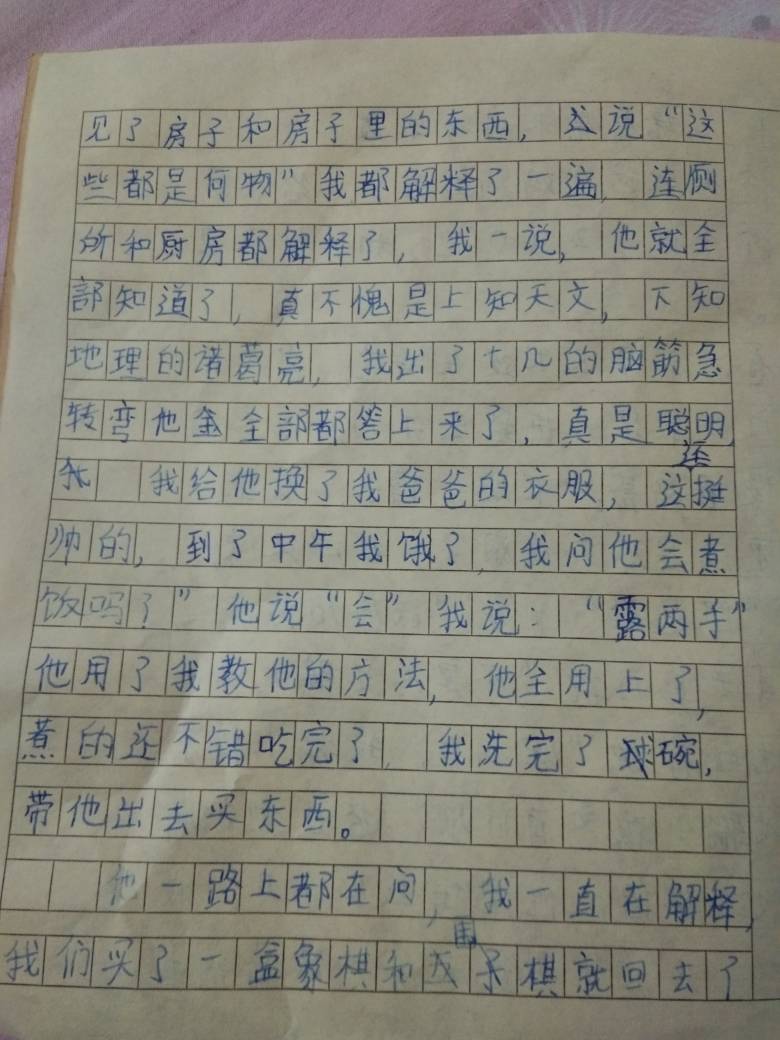 见了房子和房子里的东西，说“这
些都是何物”我都解释了一遍，连厕
所和厨房都解释了，我一说，他就全
部知道了，真不愧是上知天文，下知
地理的诸葛亮，我出了十几的脑筋急
转弯他全部都答上来了，真是聪明，
我给他换了我爸爸的衣服，还挺
帅的，到了中午我饿了，我问他会煮
饭吗？”他说“会”我说：“露两手”
他用了我教他的方法，他全用上了，
煮的还不错吃完了，我洗完了碗，
带他出去买东西。
他一路上都在问，我一直在解释，
我们买了一盒象棋和围棋就回去了